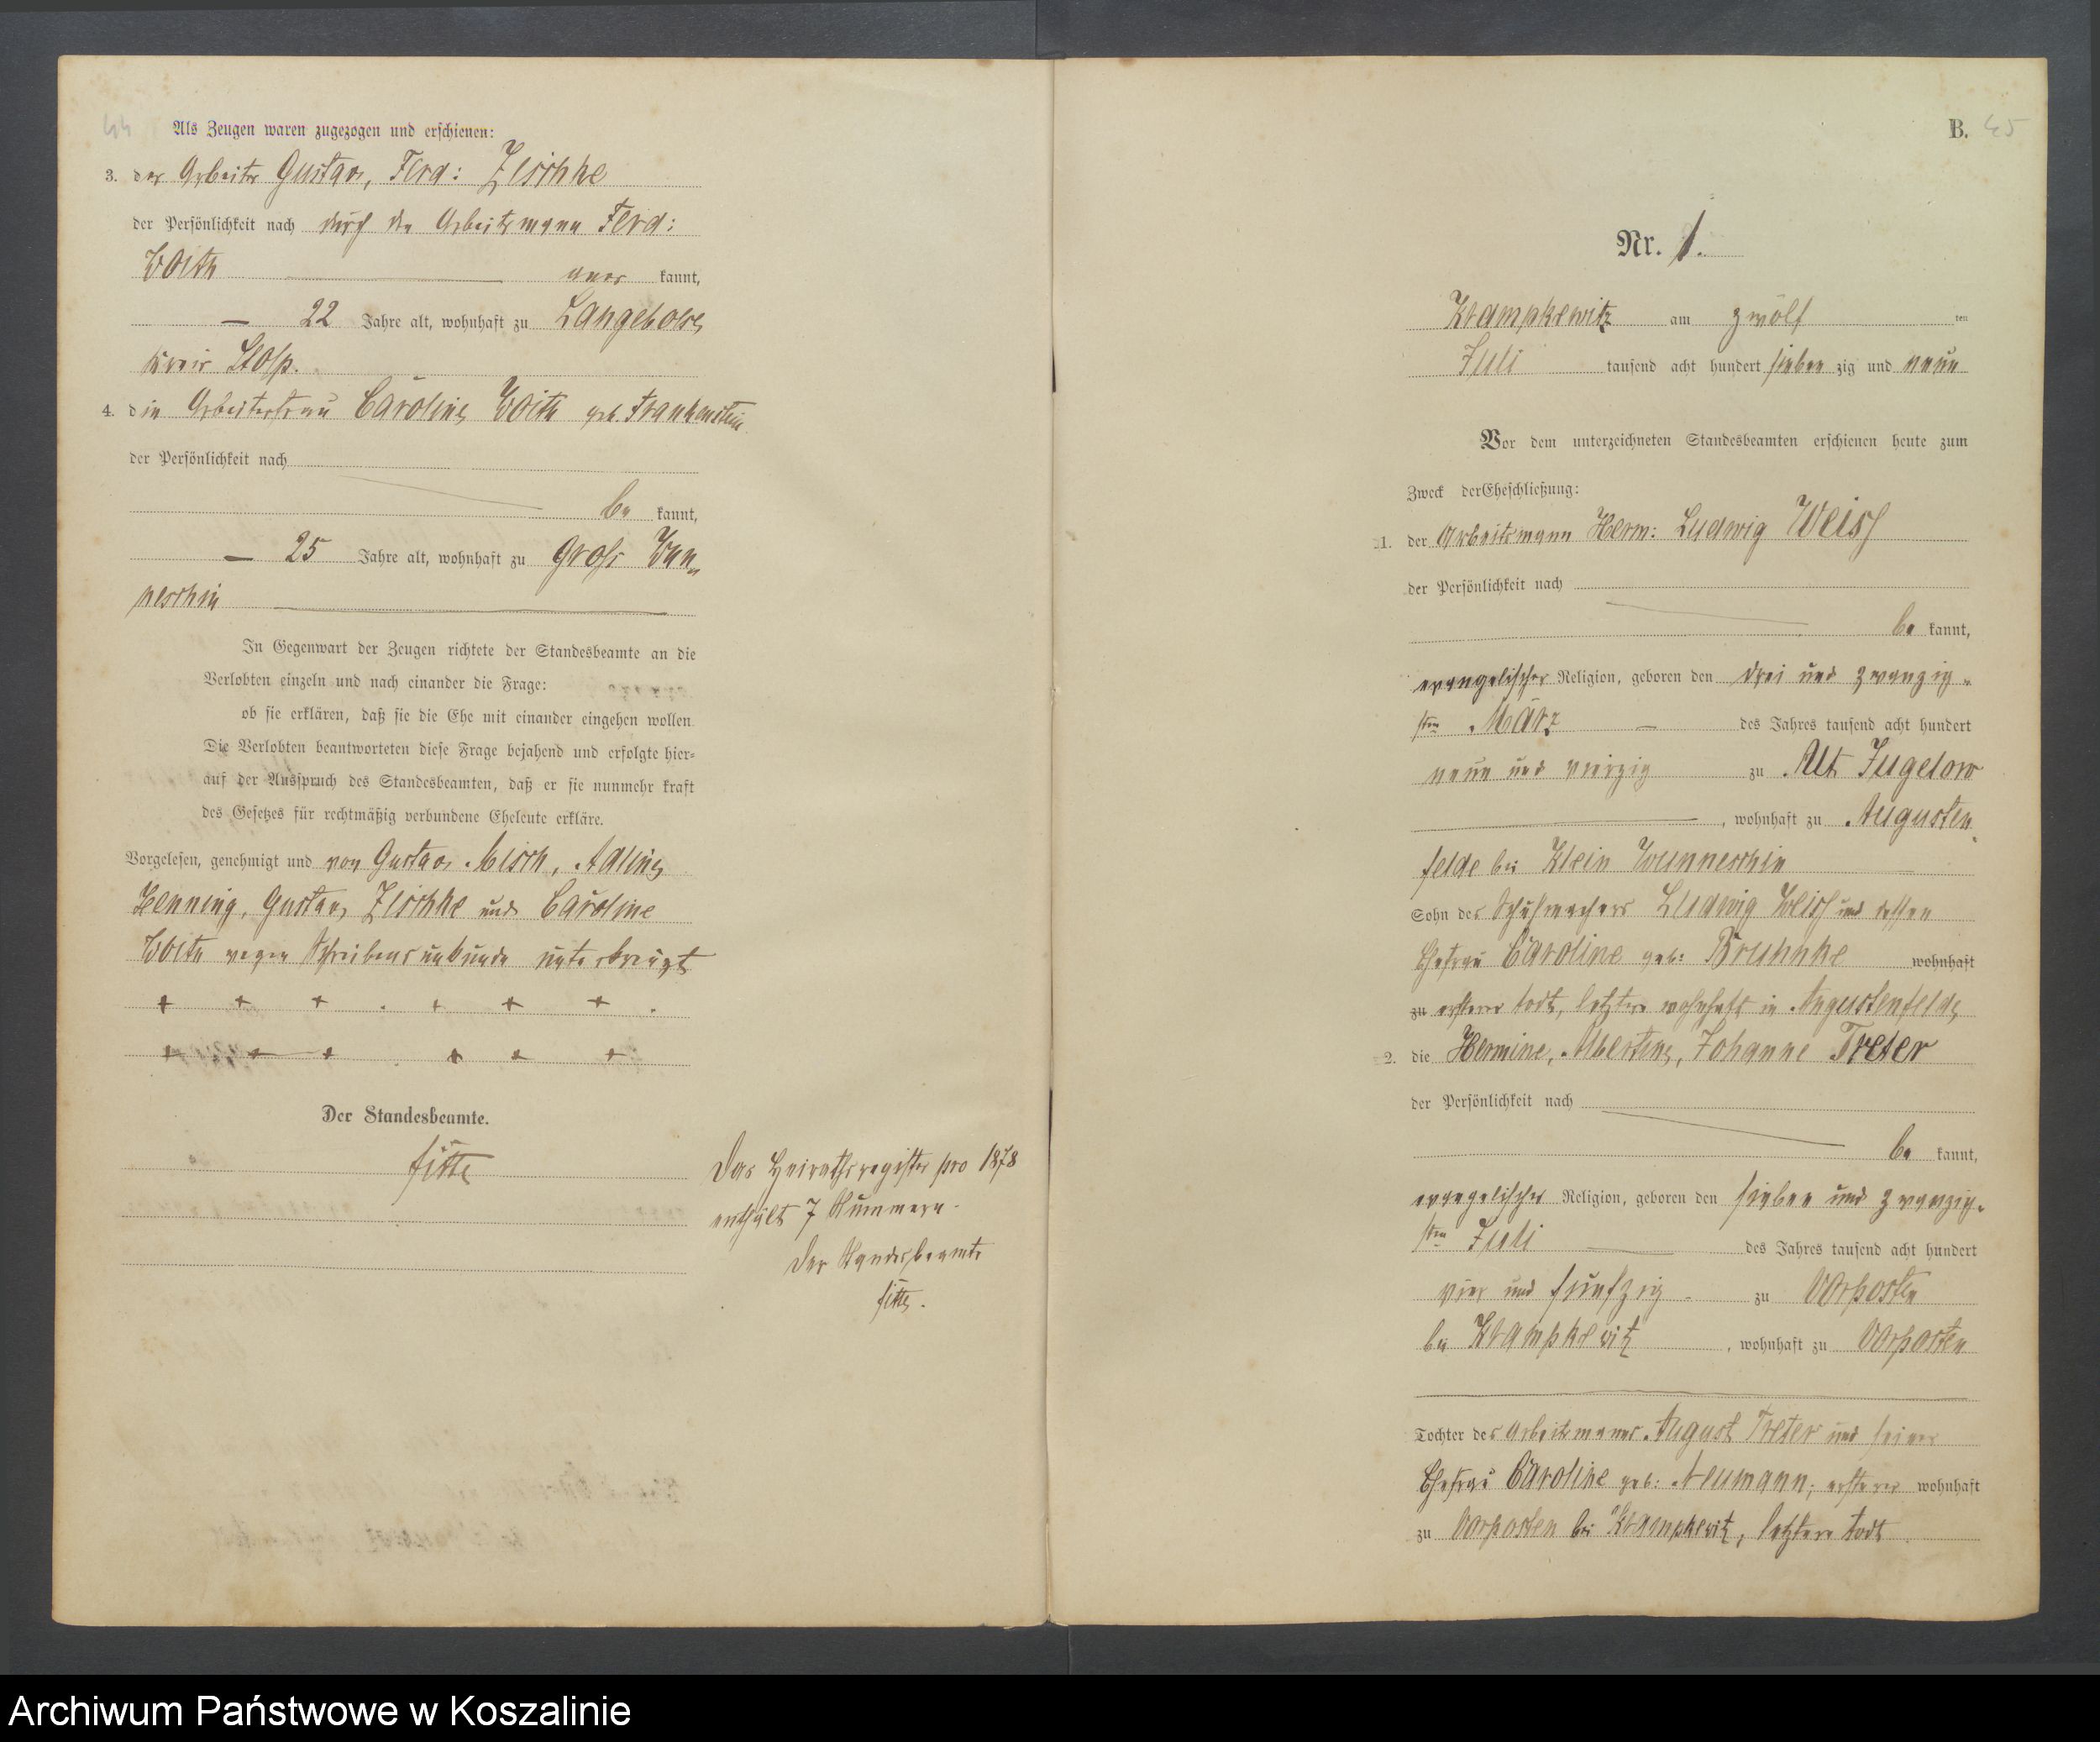 44
Als Zeugen waren zugezogen und erschienen:
3. der Arbeiter Gustav, Ferd: Zischke
der Persönlichkeit nach durch den Arbeitsmann Ferd:
Woith aner kannt,
22 Jahre alt, wohnhaft zu Langeböse,
Kreis Stolp.
4. die Arbeiterfrau Caroline, Woith geb. Frankenstein
der Persönlichkeit nach
be kannt,
25 Jahre alt, wohnhaft zu Gross Wun-
neschin
In Gegenwart der Zeugen richtete der Standesbeamte an die
Verlobten einzeln und nach einander die Frage:
ob sie erklären, daß sie die Ehe mit einander eingehen wollen.
Die Verlobten beantworteten diese Frage bejahend und erfolgte hier-
auf der Ausspruch des Standesbeamten, daß er sie nunmehr kraft
des Gesetzes für rechtmäßig verbundene Eheleute erkläre.
Vorgelesen, genehmigt und von Gustav Misch, Adline
Henning, Gustav, Zischke und Caroline
Woith wegen Schreibensunkunde unterkreuzt
+ + + . + + + .
+ + + . + + +
Der Standesbeamte.
Das Heirathsregister pro 1878
enthält 7 Nummern.
Der Standesbeamte
B. 45
Nr. 1.
Krampkewitz am zwölf ten
Juli tausend acht hundert sieben zig und neun
Vor dem unterzeichneten Standesbeamten erschienen heute zum
Zweck der Eheschließung:
1. der Arbeitsmann Herm: Ludwig Weiss
der Persönlichkeit nach
be kannt,
evangelischer Religion, geboren den drei und zwanzig-
sten März des Jahres tausend acht hundert
neun und vierzig zu Alt Jugelow
, wohnhaft zu Augusten-
felde bei Klein Wunneschin
Sohn des Schuhmachers Ludwig Weiss und dessen
Ehefrau Caroline geb: Bruhnke wohnhaft
zu ersterer todt, letztere wohnhaft in Augustenfelde
2. die Hermine, Albertine, Johanne Treter
der Persönlichkeit nach
be kannt,
evangelischer Religion, geboren den sieben und zwanzig-
sten Juli des Jahres tausend acht hundert
vier und fünfzig zu Vorposten
bei Krampkewitz, wohnhaft zu Vorposten
Tochter des Arbeitsmanns August Treter und seiner
Ehefrau Caroline geb: Neumann, ersterer wohnhaft
zu Vorposten bei Krampkewitz, letztere todt
Archiwum Państwowe w Koszalinie